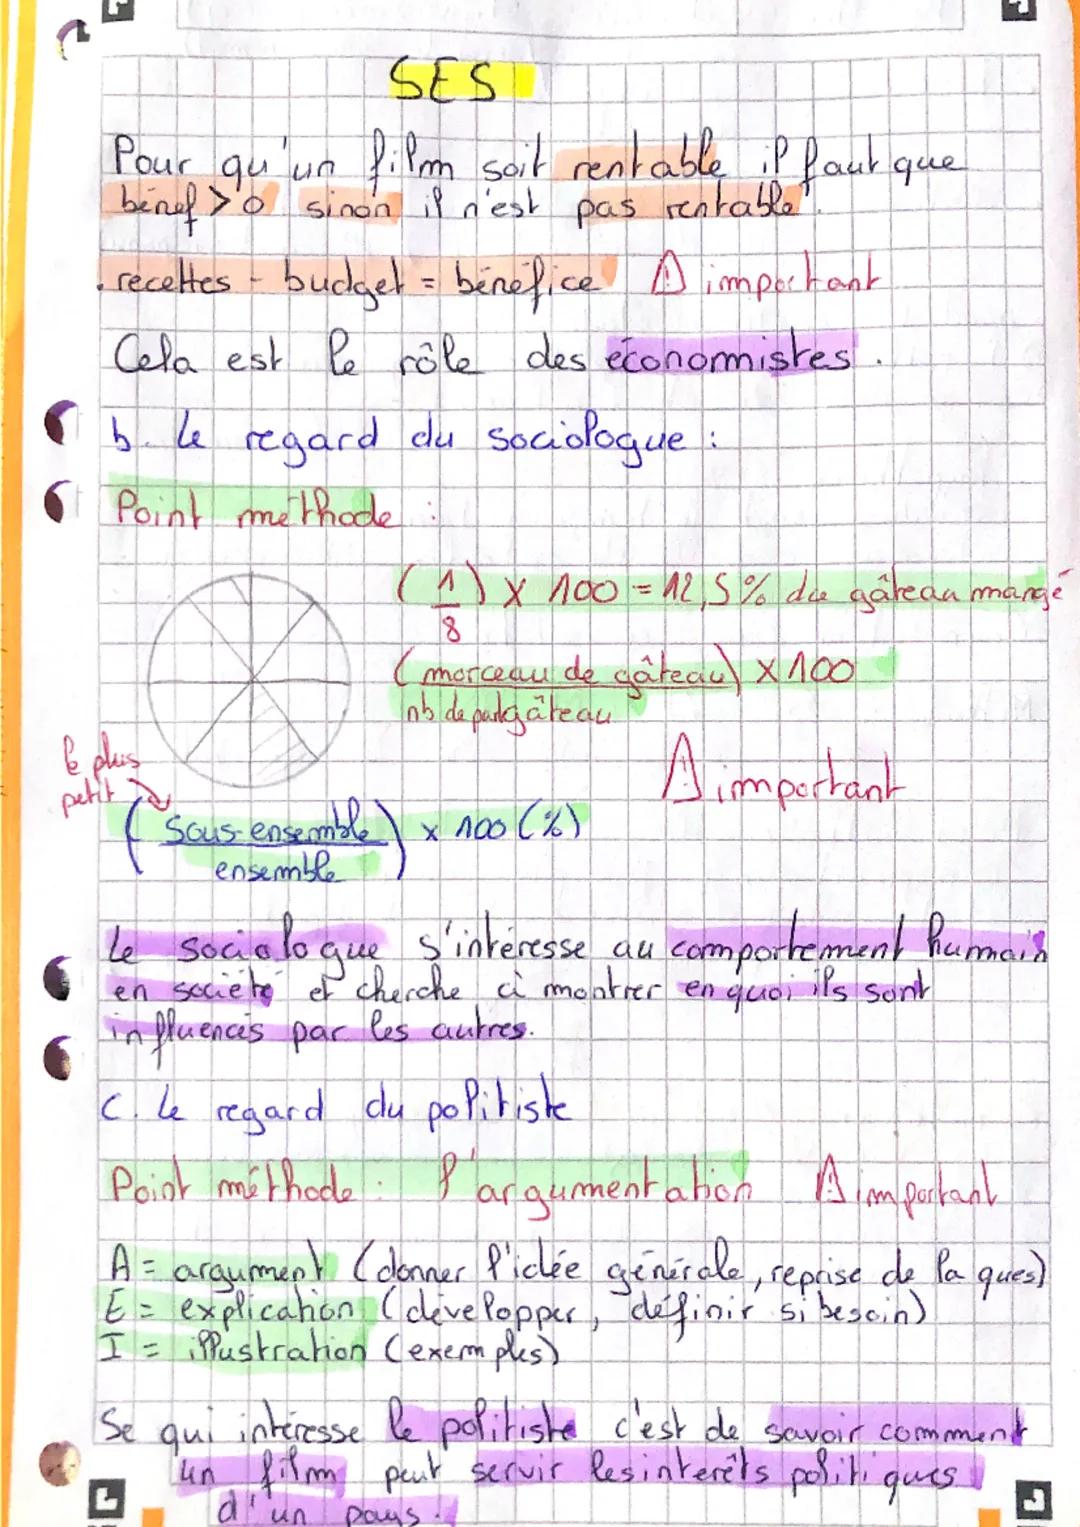 SES
Pour qu'un film soit rentable il faut que
bénéf > 0 sinon il n'est pas rentable.
recettes - budget = bénéfice ⚠ important
Cela est le rôle des économistes.
b. Le regard du sociologue :
Point méthode :
(1/8) x 100 = 12,5% du gâteau mangé
(morceau de gâteau / nb de part gâteau) x 100
⚠ important
le plus
petit
(sous-ensemble / ensemble) x 100 (%)
Le sociologue s'intéresse au comportement humain
en société et cherche à montrer en quoi ils sont
influencés par les autres.
C. Le regard du politiste
Point méthode : l'argumentation ⚠ important
A = argument (donner l'idée générale, reprise de la ques)
E = explication (développer, définir si besoin)
I = illustration (exemples)
Se qui intéresse le politiste c'est de savoir comment
un film peut servir les interêts politiques
d'un pays.